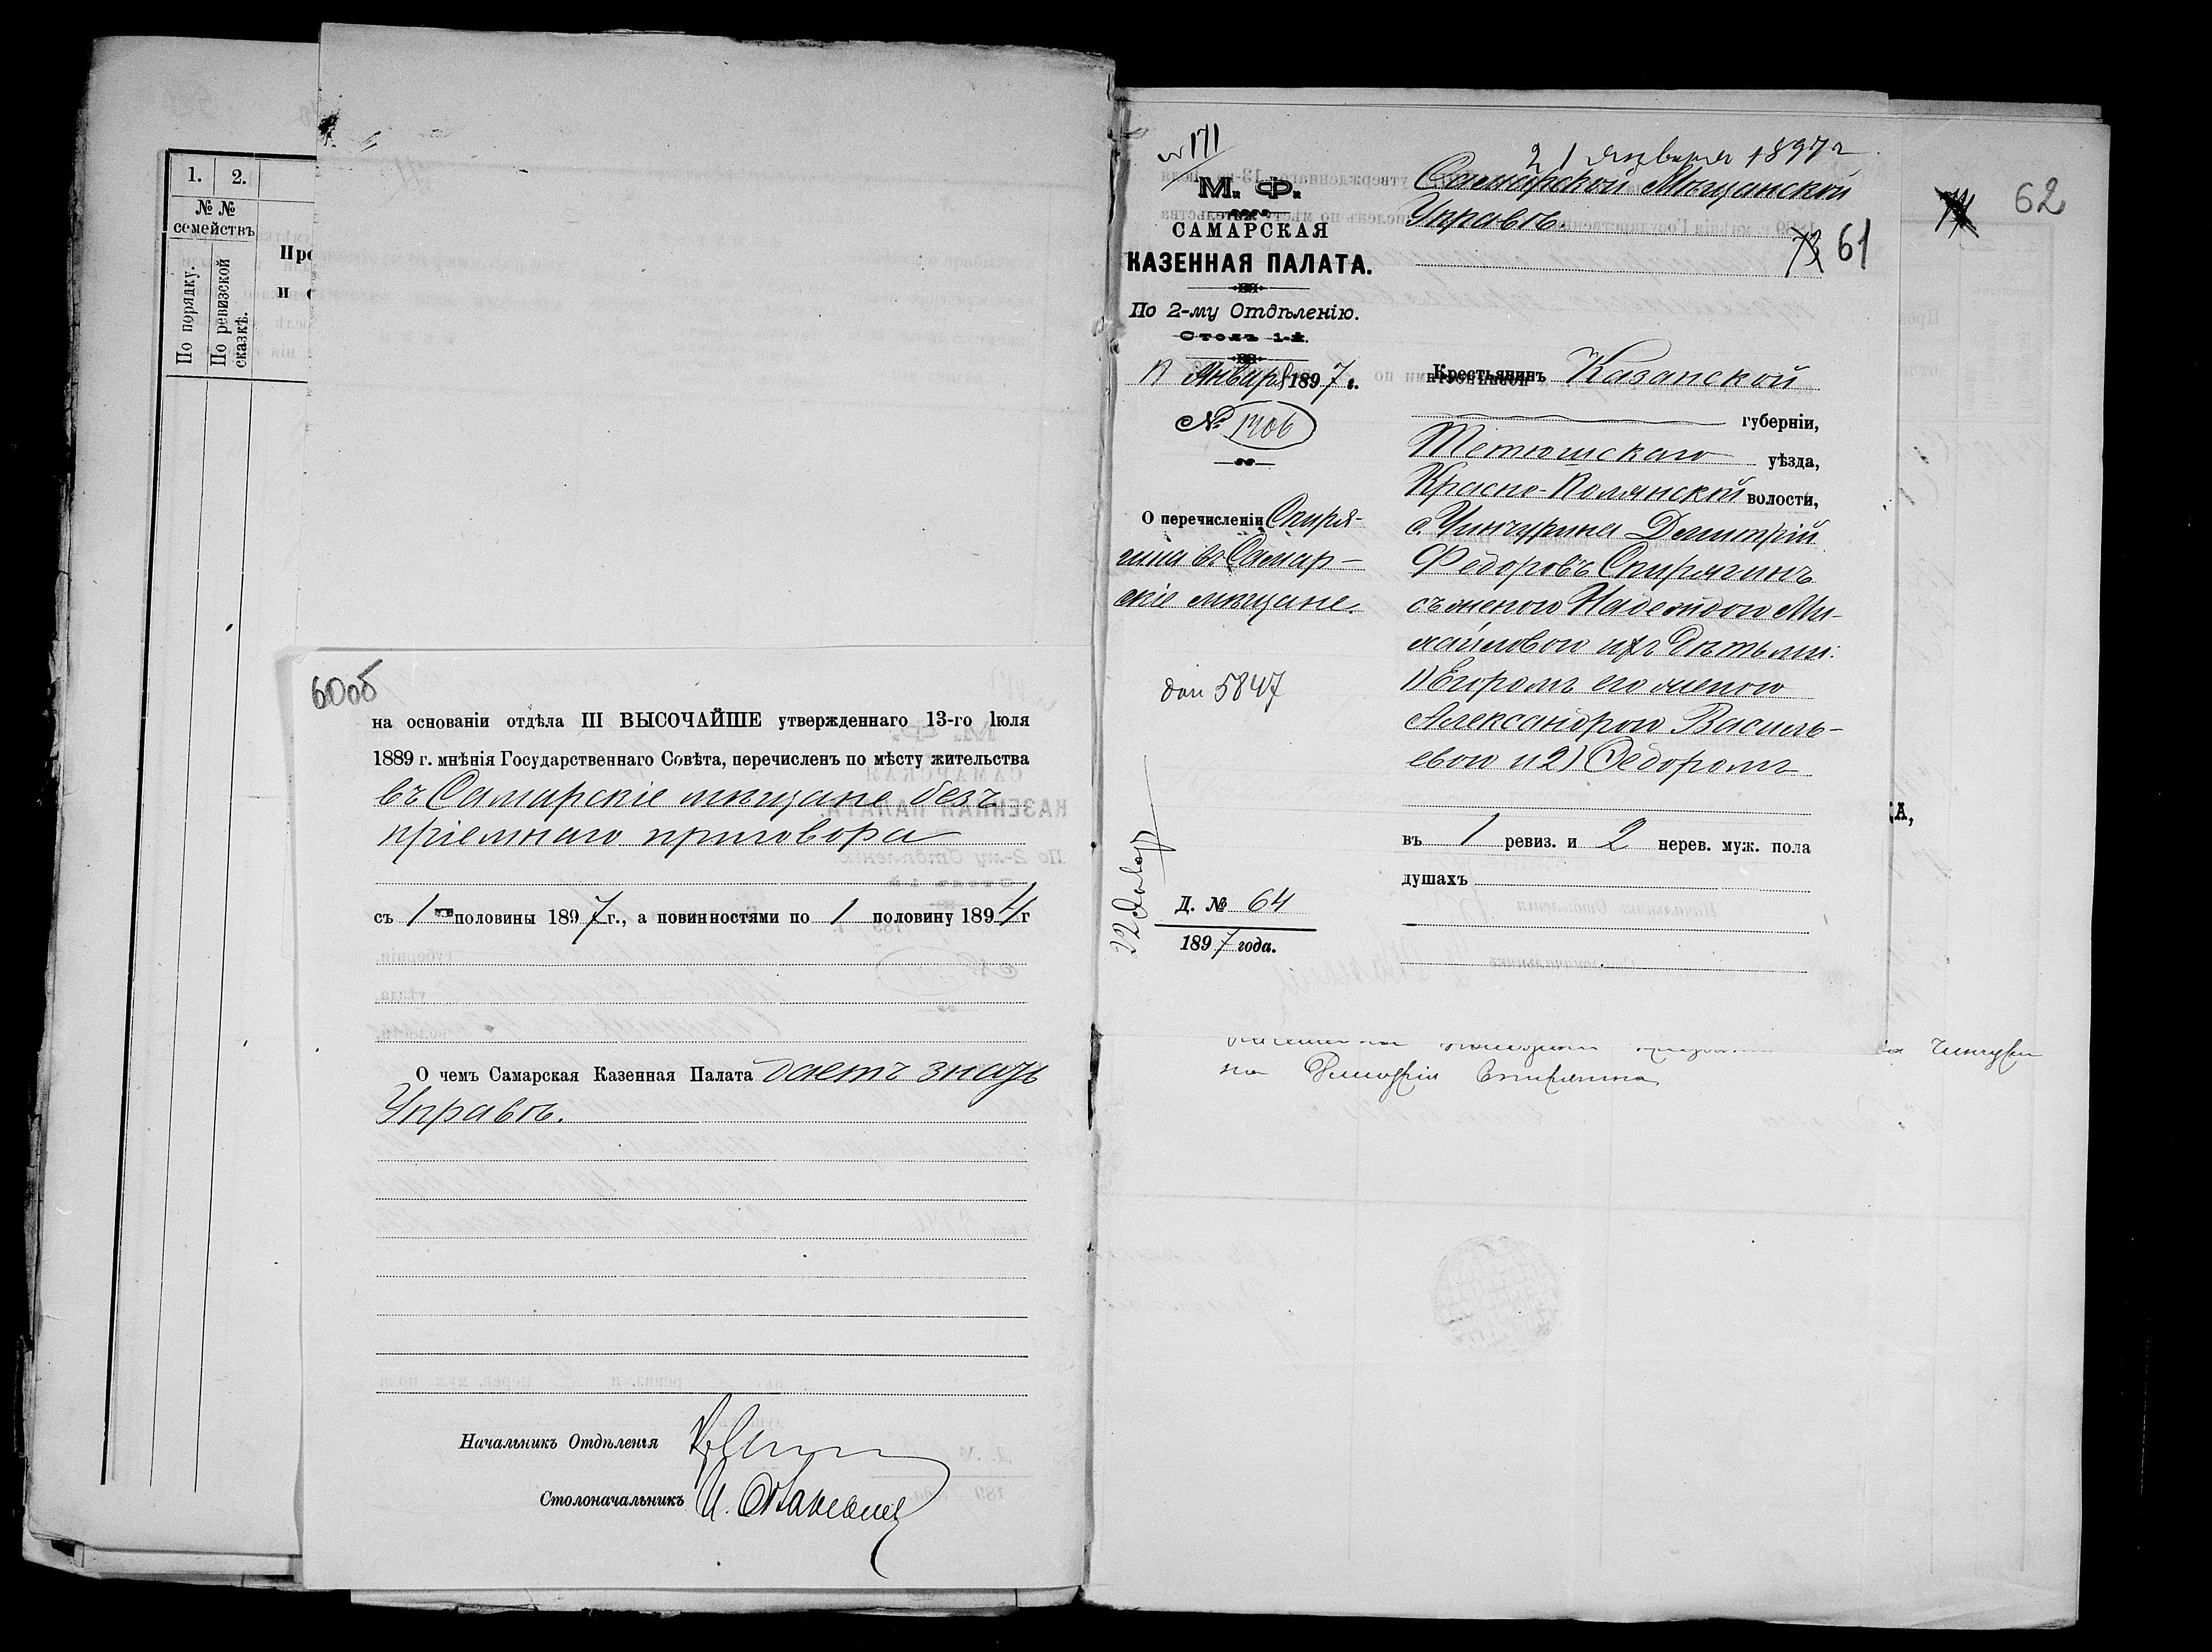 1.
2.
№ №
семействъ
По порядку.
По ревизской
сказкѣ.
60об
на основаніи отдѣла III ВЫСОЧАЙШЕ утвержденнаго 13-го Іюля
1889 г. мнѣнія Государственнаго Совѣта, перечисленъ по мѣсту жительства
въ Самарскіе мѣщане безъ
пріемнаго приговора
съ 1 половины 1897 г., а повинностями по 1 половину 1894 г
О чемъ Самарская Казенная Палата даетъ знать
Управѣ.
Начальникъ Отдѣленія
Столоначальникъ
171
М. Ф.
САМАРСКАЯ
КАЗЕННАЯ ПАЛАТА.
По 2-му Отдѣленію.
Столъ 1-й.
Января 1897 г.
№ 1206
О перечисленіи Спиря-
гина въ Самар-
скіе мѣщане.
5847
Д. № 64
1897 года.
21 Января 1897 г
Самарской Мѣщанской
Управѣ.
73 61
Крестьянинъ Казанской
губерніи,
Тетюшскаго уѣзда,
Красно-Полянской волости,
с. Чинчурина Дмитрій
Федоровъ Спирягинъ
съ женою Надеждою Ми-
хайловою и дѣтьми:
1) Егоромъ его женою
Александрою Василь-
евою и 2) Федоромъ
въ 1 ревиз. и 2 нерев. муж. пола
душахъ
62
на Дмитрія Спирягина